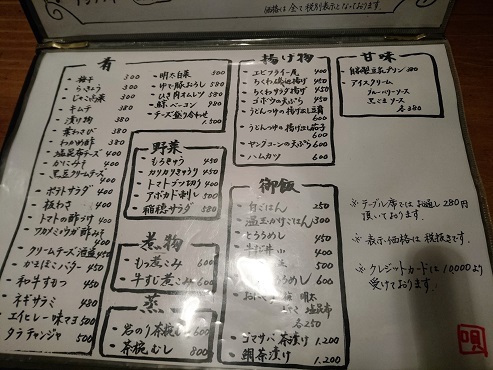 価格は全て税別表示となっております。
肴
・梅干 300
・らっきょう 300
・じゃこ大葉 300
・キムチ 380
・漬け物 380
・葉わさび 380
・わかめ酢 380
・塩昆布チーズ 400
・かにみそ 400
・黒豆クリームチーズ
・ポテトサラダ 450
・板わさ
・トマトの酢づけ 450
・クリームチーズ酒盗 450
・かまぼこバター 450
・和牛すもつ 450
・ネギサラミ 450
・エイヒレ一味マヨ 500
・タラチャンジャ 500
・明太白菜 500
・ゆで豚おろし 580
・ひき肉オムレツ 580
・鯨ベーコン 580
・チーズ盛り合わせ 1,500
野菜
・もろきゅう 450
・カリカリきゅうり 450
・トマトブツ切り 400
・アボカド刺し 500
・稲穂サラダ 580
煮物
・もつ煮こみ 600
・牛すじ煮こみ 600
蒸
・岩のり茶碗むし 600
・茶碗むし 800
揚げ物
・エビフライ一尾 400
・ちくわ磯辺揚げ 400
・ちくわサラダ揚げ 450
・ゴボウの天ぷら 450
・うどんつゆの揚げ出し豆腐 600
・うどんつゆの揚げ出し茄子 600
・ヤングコーンの天ぷら 600
・ハムカツ 600
御飯
・白ごはん 250
・温玉かけごはん 300
・とろろめし 450
・牛すじ丼 400
めし 600
明太
塩昆布
各250
・ゴマサバ茶漬け 1,200
・鯛茶漬け 1,200
甘味
・自家製豆乳プリン 380
・アイスクリーム
ブルーベリーソース
黒ごまソース
各380
※テーブル席ではお通し280円
頂いております。
※表示価格は税抜きです。
※クレジットカードは10,000より
受けております。
唄